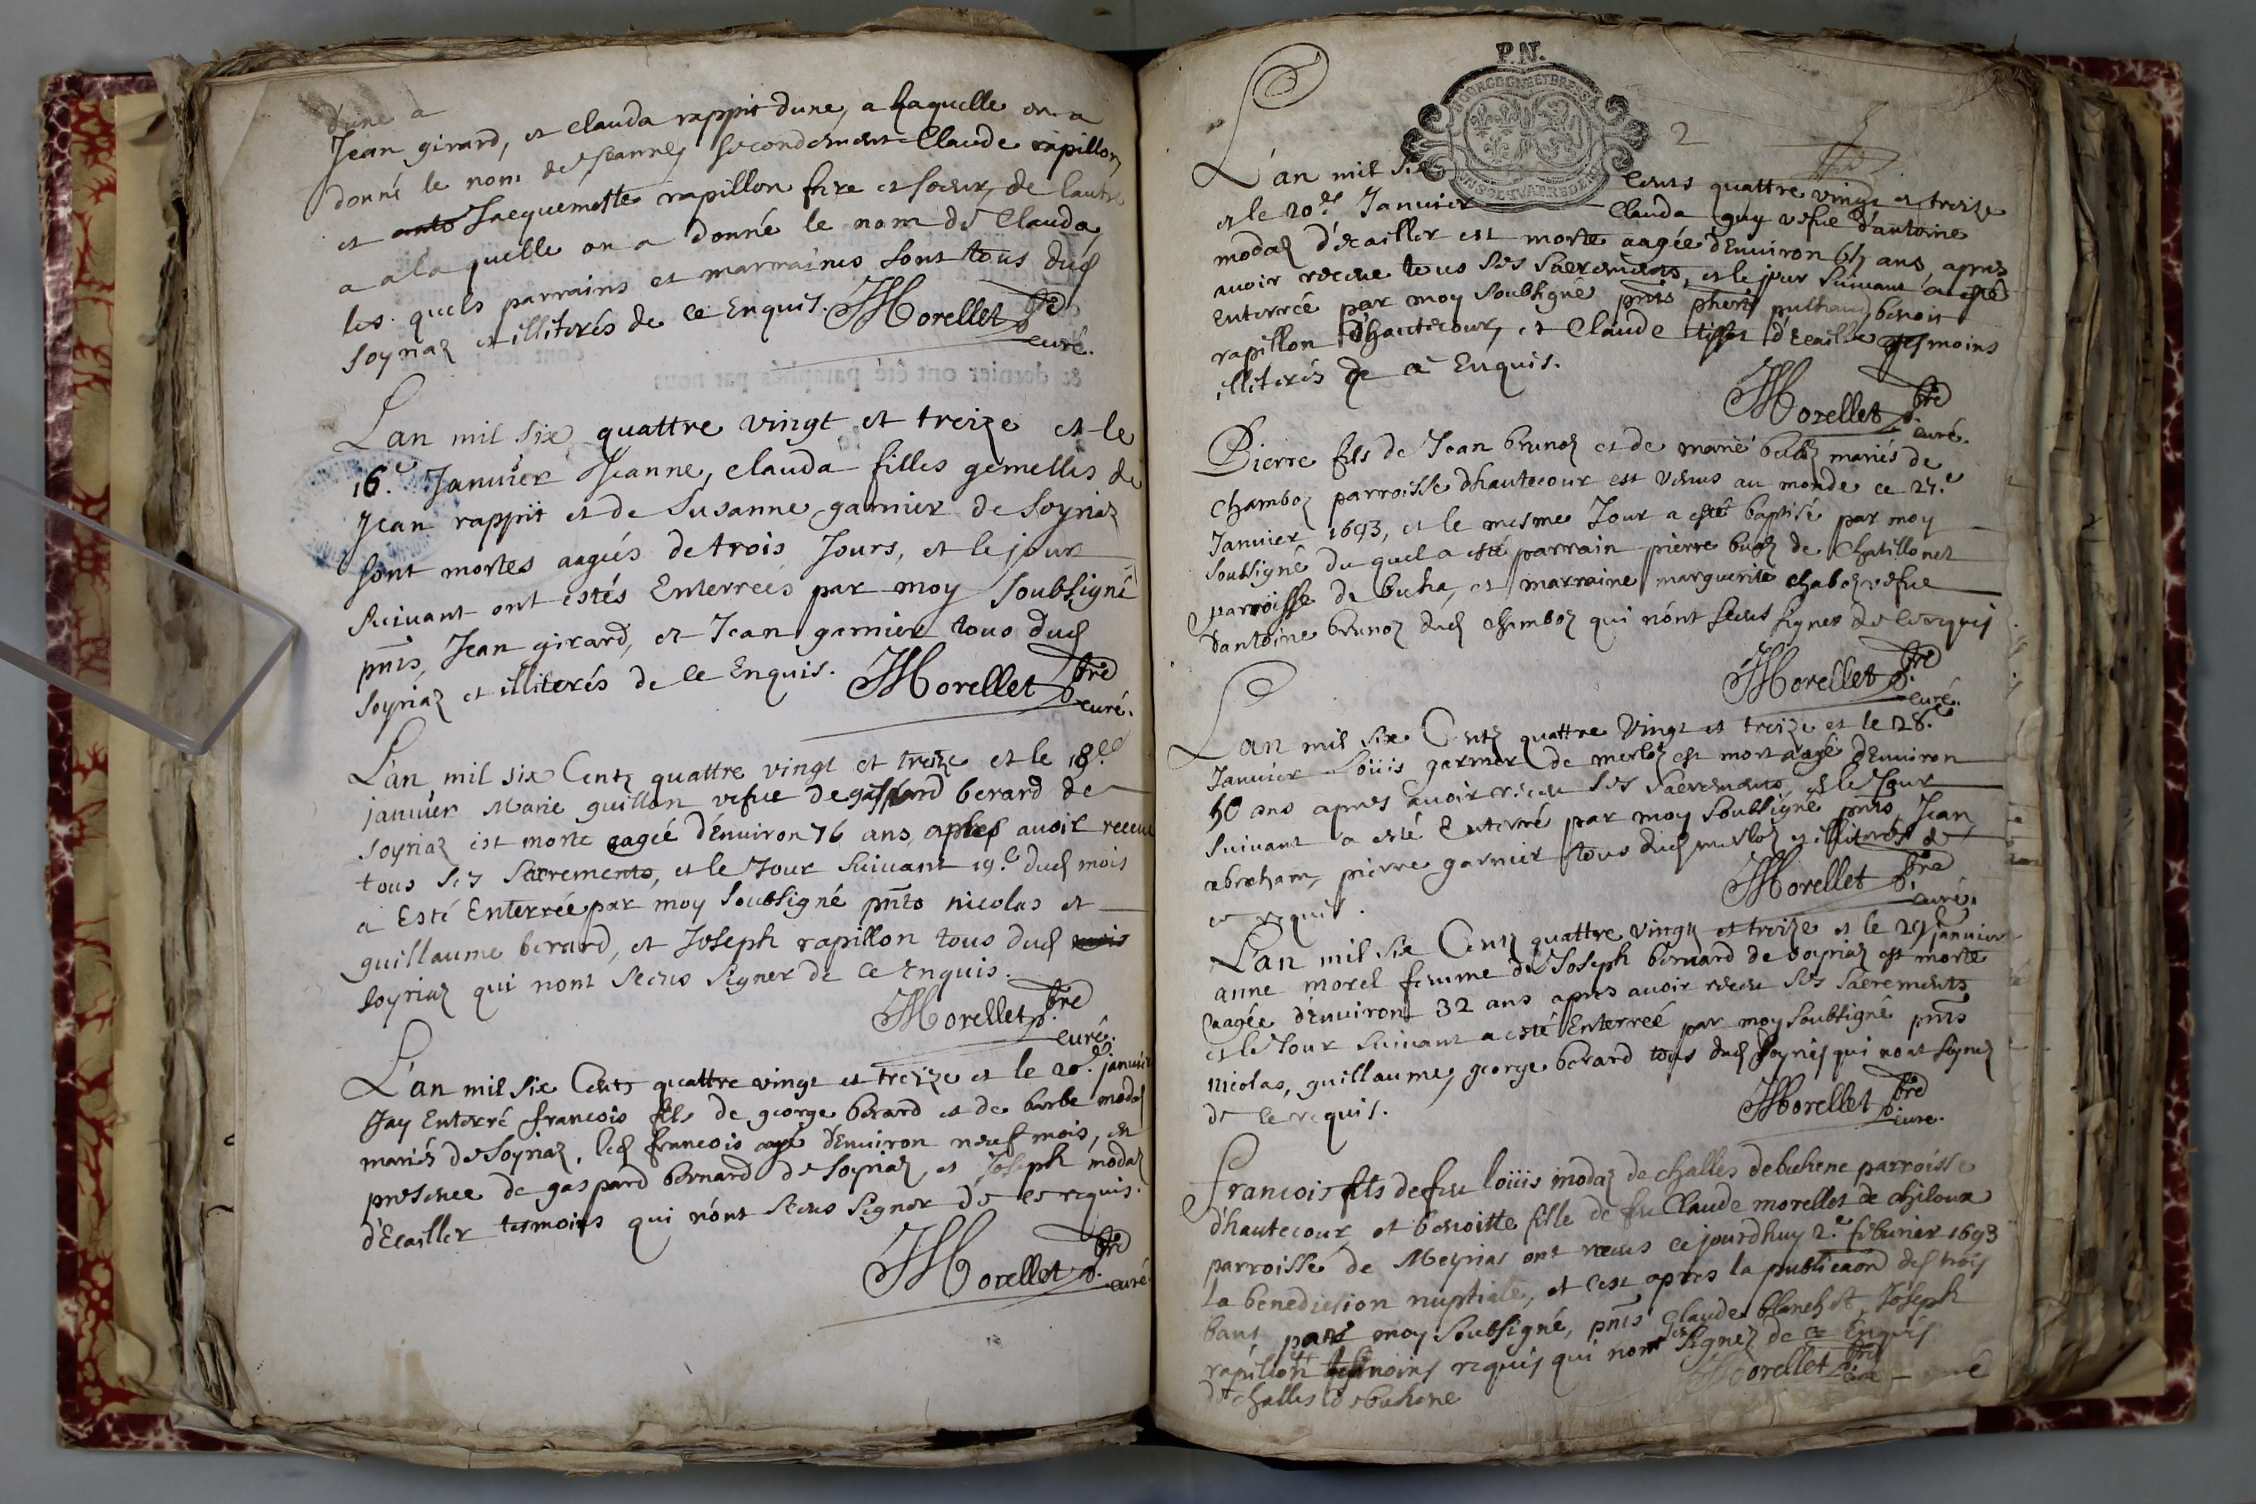 d'une a
Jean girard, et clauda rappit dune, a laquelle on a
donné le nom de Jeanne, secondement Claude rapillon,
et Jacquemette rapillon frere et soeur, de lautre
a ala quelle on a donné le nom de Clauda,
les quels parrains et marraines sont tous dud
soyriaz et illiterés de ce Enquis. Morellet pbre
curé.
Lan mil six quattre vingt et treize et le
16.e Januier Jeanne, clauda filles gemelles de
Jean rappit et de Susanne garnier de Soyriaz
sont mortes aagées de trois Jours, et le jour
suiuant ont estés Enterreés par moy soubsigné
pnts, Jean girard, et Jean garnier tous dud
soyriaz et illiterés de ce Enquis. Morellet pbre
curé.
L'an mil six Centz quattre vingt et treize et le 18.e
januier Marie guillon vefue de gaspard berard de
soyriaz est morte aagée d'Enuiron 76 ans, apres auoir receu
tous ses Sacrements, et le Jour suiuant 19.e dud mois
a Esté Enterrée par moy soubsigné pnts nicolas et
guillaume berard, et Joseph rapillon tous dud mois
soyriaz qui nont sceus signer de ce Enquis.
Morellet pbre
curé.
L'an mil six Cents quattre vingt et treize et le 20.e januier
Jay Enterré francois fils de george berard et de barbe modaz
mariés de Soyriaz, led francois agé d'Enuiron neuf mois, en
presence de gaspard bernard de soyriaz, et Joseph modaz
d'Ecailler tesmoins qui n'ont sceus signer de ce requis.
Morellet pbre
curé
P.N.
2
L'an mil six cents quattre vingt et treize
et le 20.e Januier Clauda guy vefue d'antoine
modaz d'ecailler est morte aagée d'Enuiron ans, apres
auoir receue tous ses sacrements, et le jour suiuant a esté
Enterrée par moy soubsigné pnts benoit
rapillon d'hautecour, et Claude d'Ecailler tesmoins
illiterés de ce Enquis.
Morellet pbre
curé.
Pierre fils de Jean brunoz et de marie mariés de
chamboz parroisse d'hautecour est venus au monde ce 27.e
Januier 1693, et le mesme Jour a esté baptisé par moy
soubsigné du quel a esté parrain pierre de Chatillonet
parroisse de buha, et marraine marguerite vefue
d'antoine brunoz dud chamboz qui n'ont sceus signer de ce requis
Morellet pbre
curé.
Lan mil six Centz quattre Vingt et treize et le 28.e
Januier Loüis garnier de merloz est mort aagé d'Enuiron
50 ans apres auoir receu ses sacrements, et le Jour
suiuant a esté Enterré par moy soubsigné pnts Jean
abraham, pierre garnier tous dud merloz et illiterés de
ce requis.
Morellet pbre
curé.
L'an mil six Centz quattre vingtz et treize et le 29 januier
anne morel femme de Joseph bernard de soyriaz est morte
aagée d'Enuiron 32 ans apres auoir receu ses sacrements
et le Jour suiuant a esté Enterreé par moy soubsigné pnts
nicolas, guillaume, george berard tous dud soyriaz qui nont signez
de ce requis.
Morellet pbre
curé.
Francois fils de feu loüis modaz de challes debuhene parroisse
d'hautecour et benoitte fille de feu Claude morellet de chiloux
parroisse de Meyriat ont receus ce jourdhuy 2.e feburier 1693
la benediction nuptiale, et cest apres la publicaõn des trois
bans par moy soubsigné, pnts Claude blanchet, Joseph
rapillon tesmoins requis qui nont signez de ce Enquis
de challes debuhene Morellet pbre curé